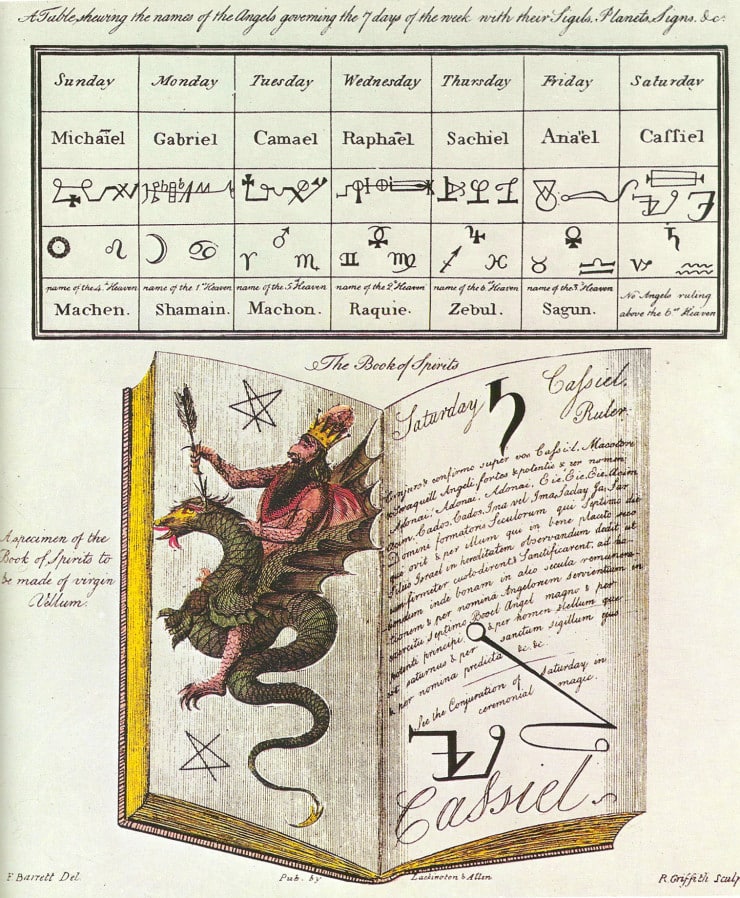 A Table shewing the names of the Angels governing the 7 days of the week with their Sigils, Planets, Signs, &c.
Sunday Monday Tuesday Wednesday Thursday Friday Saturday
Michaïel Gabriel Camael Raphaël Sachiel Anaël Caſsiel
☉ ♌ ☽ ♋ ♂ ♈ ♏ ☿ ♊ ♍ ♃ ♐ ♓ ♀ ♉ ♎ ♄ ♑ ♒
name of the 4th Heaven name of the 1st Heaven name of the 5th Heaven name of the 2d Heaven name of the 6th Heaven name of the 3d Heaven No Angels ruling
Machen. Shamain. Machon. Raquie. Zebul. Sagun. above the 6th Heaven
The Book of Spirits
Saturday ♄ Caſsiel.
Ruler.
Conjuro & confirmo super vos Caſsiel. Macotore
& Seraquill Angeli fortes & potentis & per nomen
Adonai. Adonai. Adonai. Eie. Eie. Eie. Acim
Acim. Cados. Cados. Ina vel Ima. Saday. Ja. Sar
Domini formatore Seculorum qui Septimo die
quievit & per illum qui in bene placito suo
filus Israel in hereditatem observandum dedit ut
eum firmiter custodirent & Sanctificarent. ad
endum inde bonam in alio secula remuner
tionem & per nomina Angelorum servientium in
exercitu Septimo Booel Angel magno & per
potenti principi & per nomen stellum que
est saturnus & per sanctum sigillum ejus
& per nomina predicta &c. &c.
See the Conjuration of Saturday in
ceremonial magic.
Caſsiel.
A specimen of the
Book of Spirits to
be made of virgin
Vellum.
F. Barrett Del. Pub. by Lackington & Allen R. Griffith Sculp